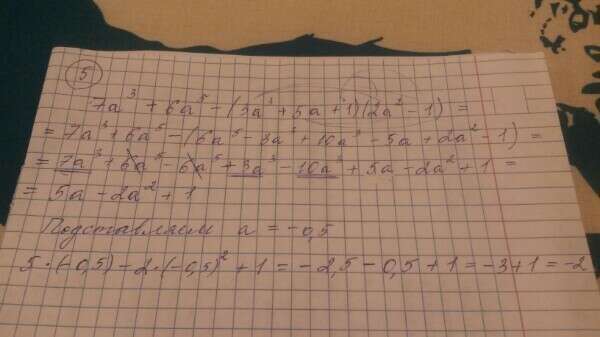 5
7a³ + 6a⁵ - (3a³ + 5a + 1)(2a² - 1) =
= 7a³ + 6a⁵ - (6a⁵ - 3a³ + 10a³ - 5a + 2a² - 1) =
= 7a³ + 6a⁵ - 6a⁵ + 3a³ - 10a³ + 5a - 2a² + 1 =
= 5a - 2a² + 1
Подставляем a = -0,5
5·(-0,5) - 2·(-0,5)² + 1 = -2,5 - 0,5 + 1 = -3 + 1 = -2